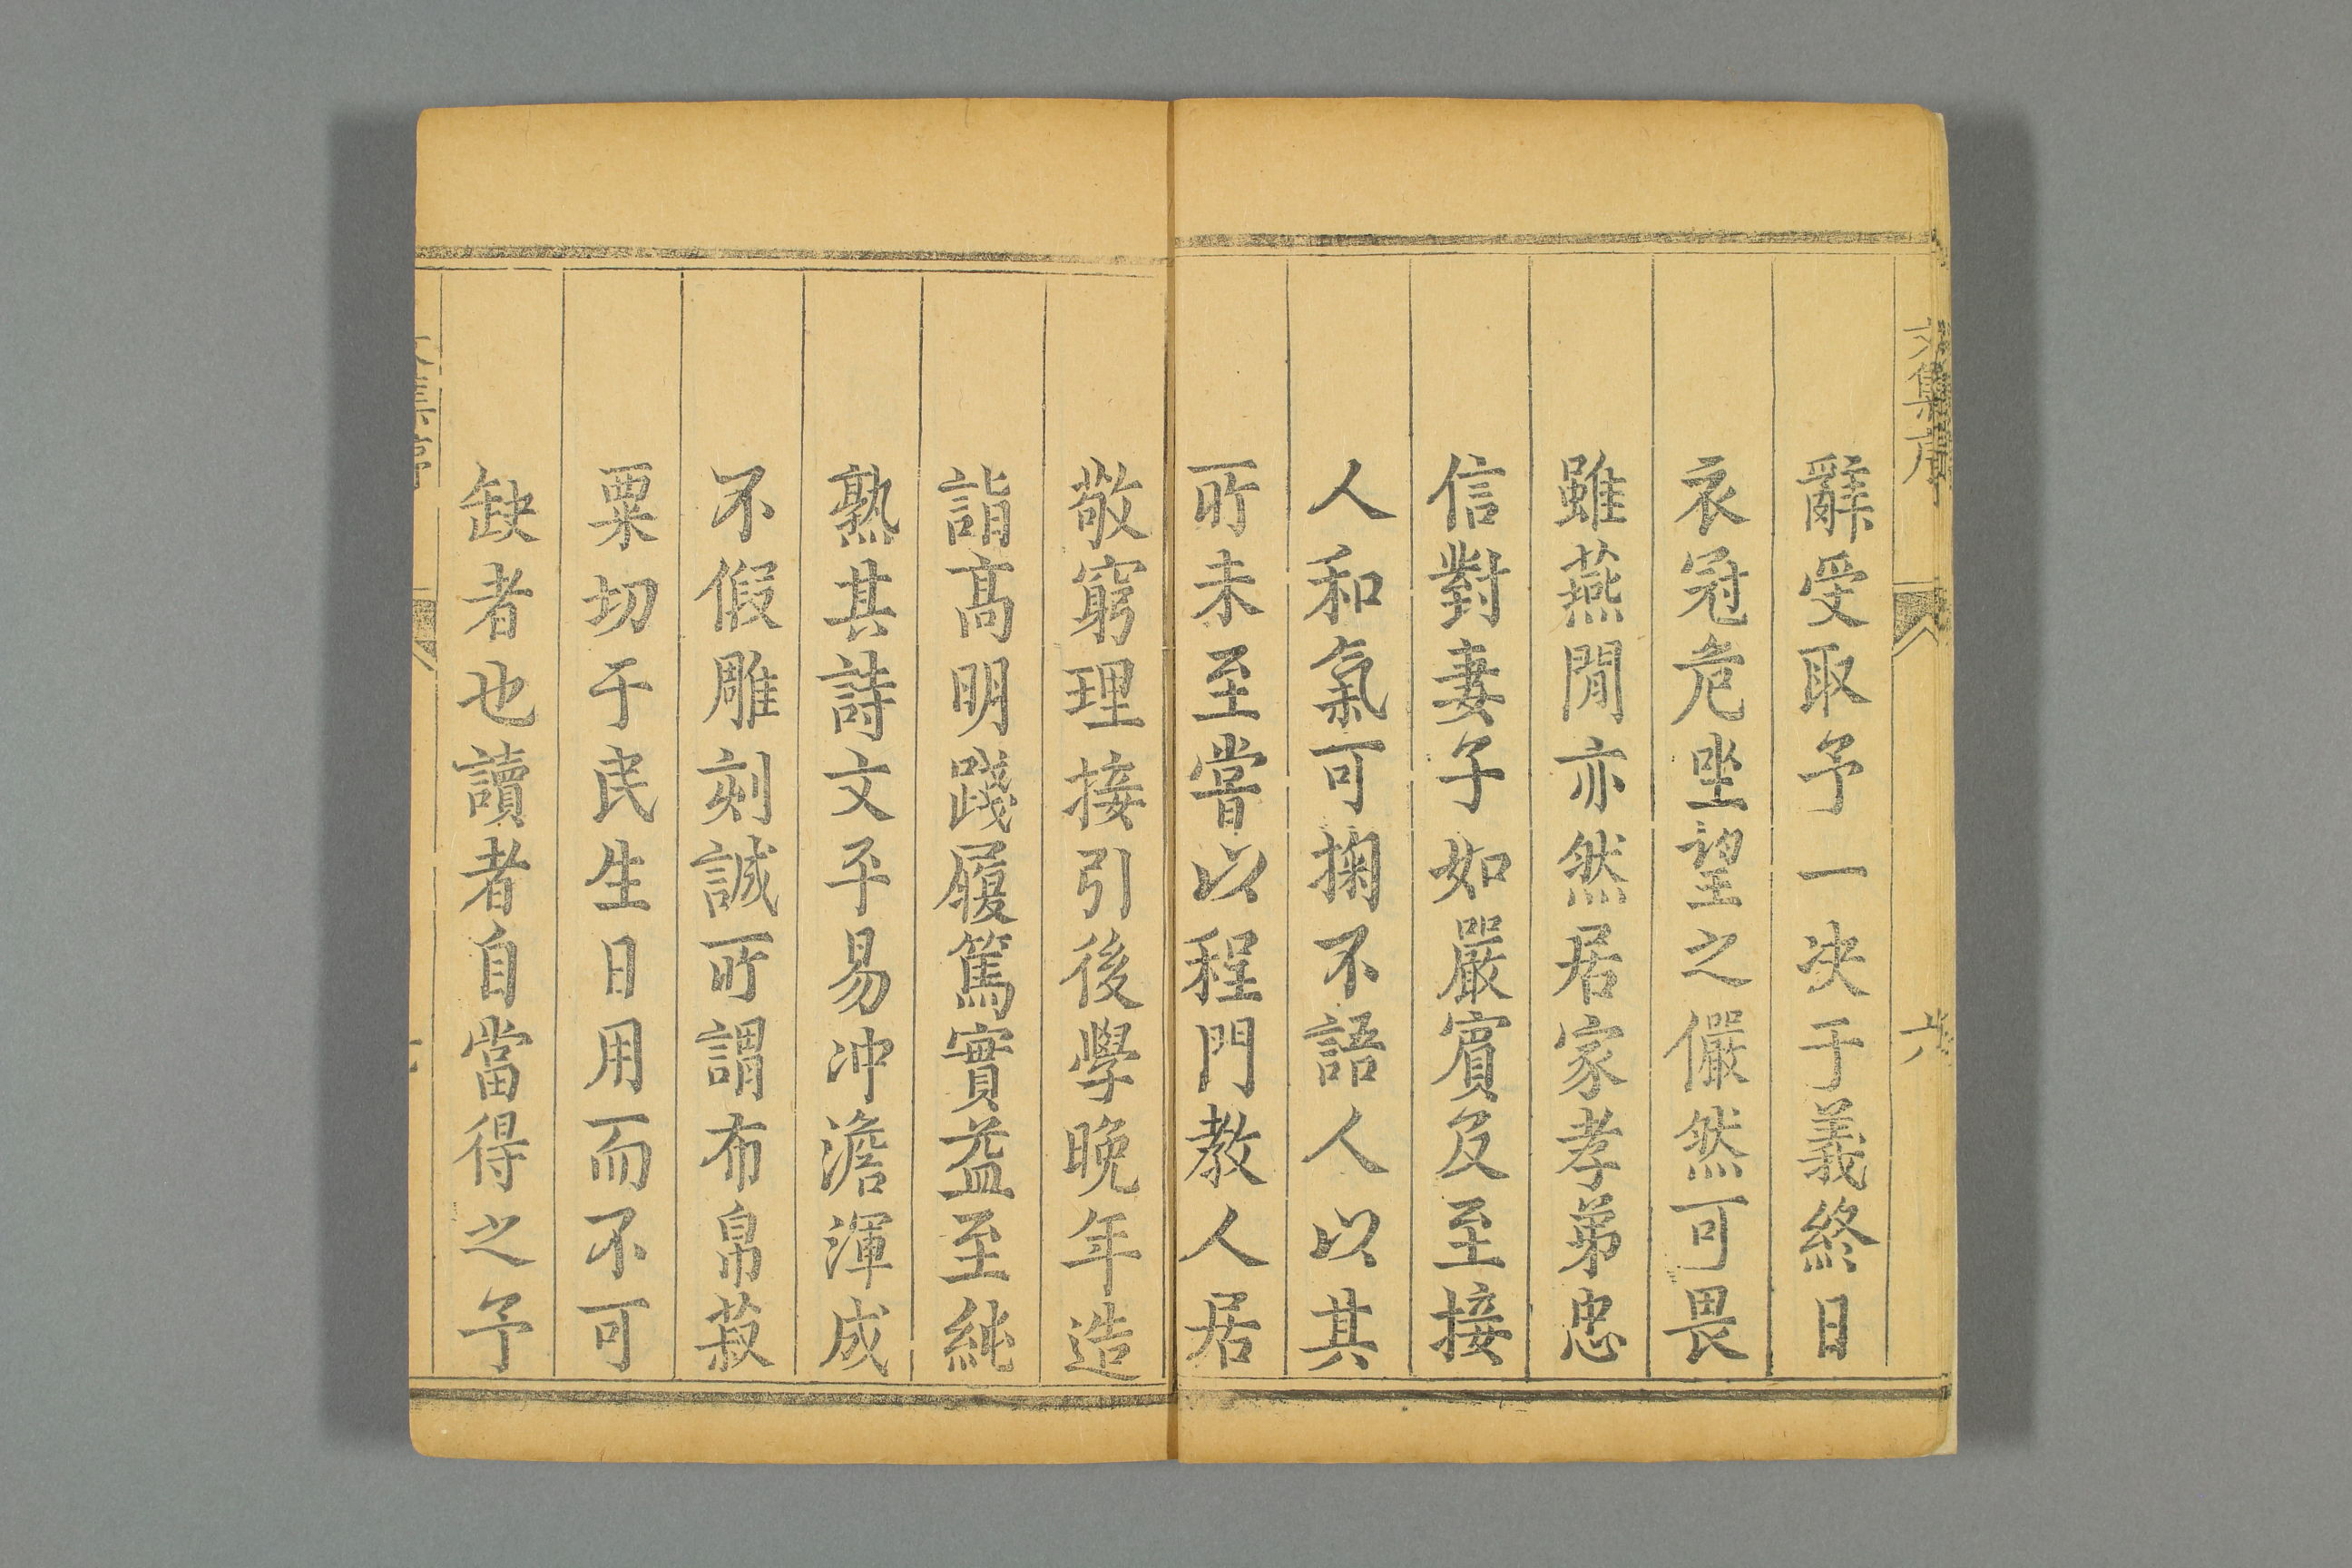 文集序
六
辭受取予一决于義終日
衣冠危坐望之儼然可畏
雖燕閒亦然居家孝弟忠
信對妻子如嚴賓及至接
人和氣可掬不語人以其
所未至嘗以程門教人居
敬窮理接引後學晚年造
詣高明踐履篤實益至純
熟其詩文平易冲澹渾成
不假雕刻誠所謂布帛菽
粟切于民生日用而不可
缺者也讀者自當得之予